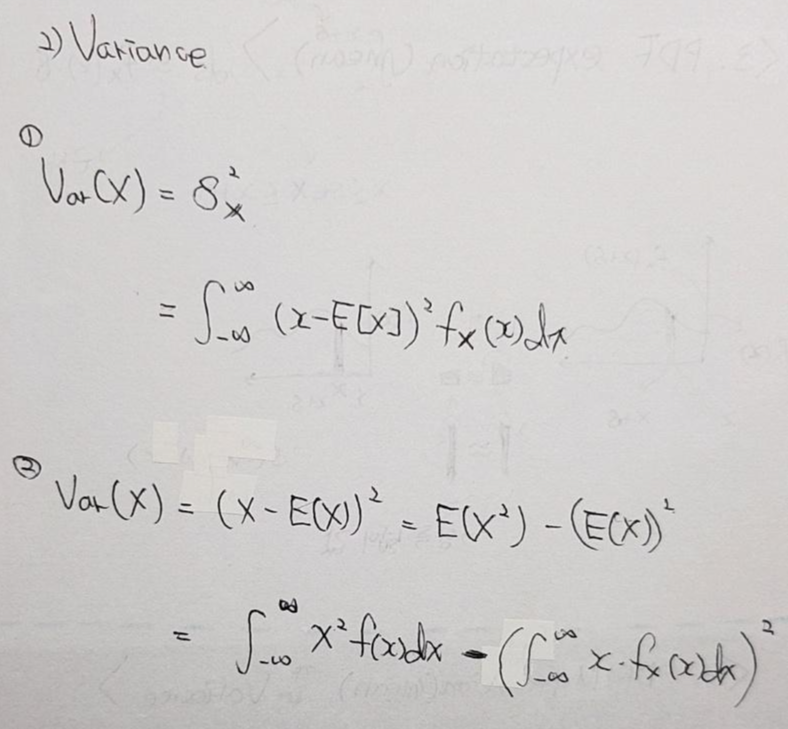 2) Variance
①
Var(X) = δ²ₓ
= ∫_{-∞}^{∞} (x-E[X])² fₓ(x)dx
② Var(X) = (X - E(X))² = E(X²) - (E(X))²
= ∫_{-∞}^{∞} x² f(x)dx - (∫_{-∞}^{∞} x·fₓ(x)dx)²